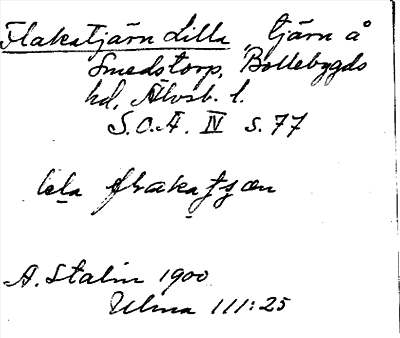 Flakatjärn Lilla, tjärn å
Smedstorp, Bollebygds
hd, Älvsb. l.
S.O.Ä. IV s. 77
lila flakatjæn
A. Stalin 1900
Ulma 111:25